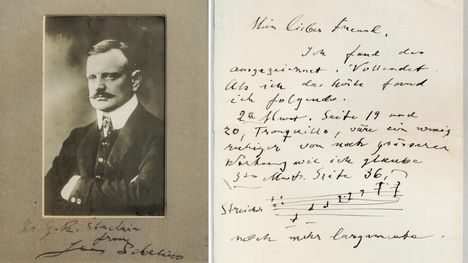 To G. R. Sinclair
from
Jean Sibelius
Mein lieber Freund.
Ich fand das
ausgezeichnet. Vollendet.
Als ich das hörte fand
ich folgende.
2te Seite 19 und
20, Tranquillo, wäre ein wenig
ruhiger von noch grösserer
Wirkung wie ich glaube
3te Seite 36,
Streicher
noch mehr largamente.